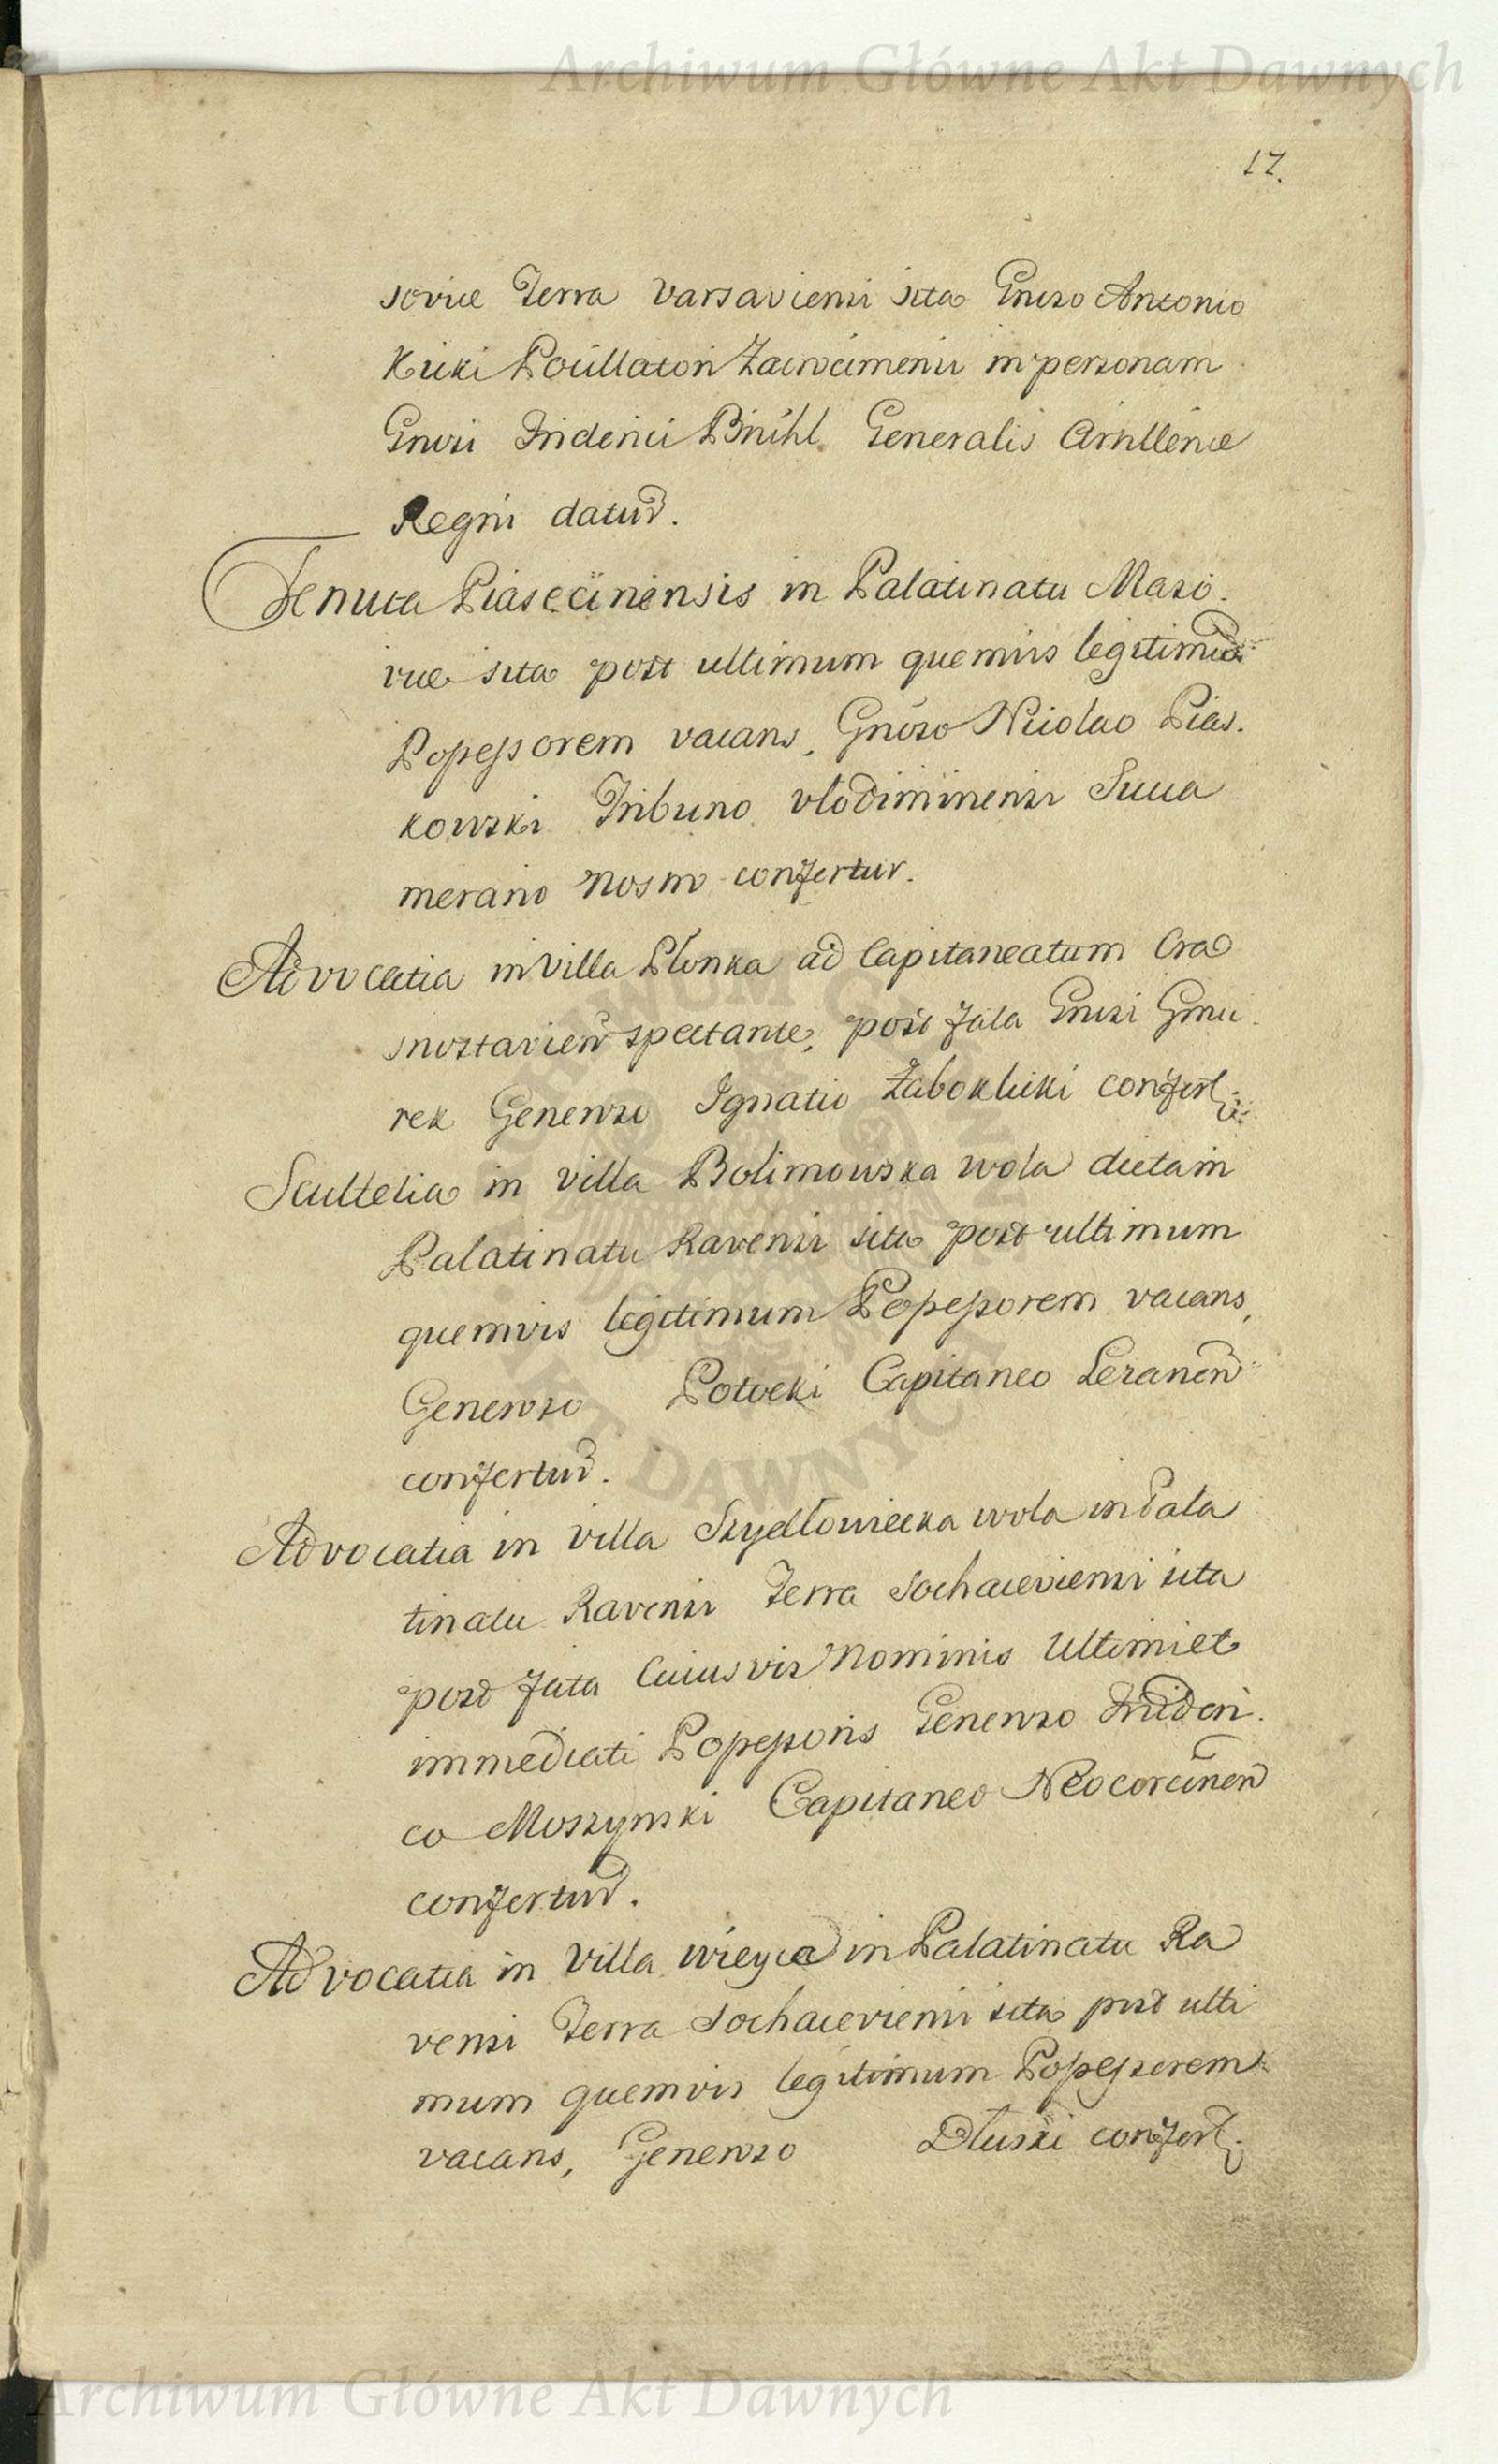 Archiwum Główne Akt Dawnych
17.
soviæ Terra Varsaviensi sita Gnoso Antonio
Kicki Pocillatori Zacroczimensi in personam
Gnosi Friderici Brühl Generalis Artilleriæ
Regni datur.
Tenuta Piasecinensis in Palatinatu Maso.
viæ sita post ultimum quemvis legitimum
Possessorem vacans, Gnoso Nicolao Pias.
kowski Tribuno Vlodimiriensi Succa
merario Nostro confertur.
Advocatia in Villa Płonka ad Capitaneatum Cra
snostavien spectante, post fata Gnosi Gmu.
rek Generoso Ignatio Zaboklicki confert
Scultetia in villa Bolimowska wola dicta in
Palatinatu Ravensi sita post ultimum
quemvis legitimum Possessorem vacans,
Generoso Potocki Capitaneo Leranen
confertur.
Advocatia in villa Szydłowiecka wola in Pala
tinatu Ravensi Terra Sochaceviensi sita
post fata Cuiusvis Nominis Ultimi et
immediati Possessoris Generoso Frideri.
co Moszynski Capitaneo Neocorcinen
confertur.
Advocatia in Villa wieyca in Palatinatu Ra
vensi Terra Sochaceviensi sita post ulti
mum quemvis legitimum Possessorem
vacans, Generoso Dłuski confert
Archiwum Główne Akt Dawnych